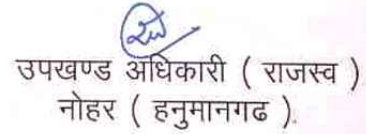 उपखण्ड अधिकारी ( राजस्व )
नोहर ( हनुमानगढ ).